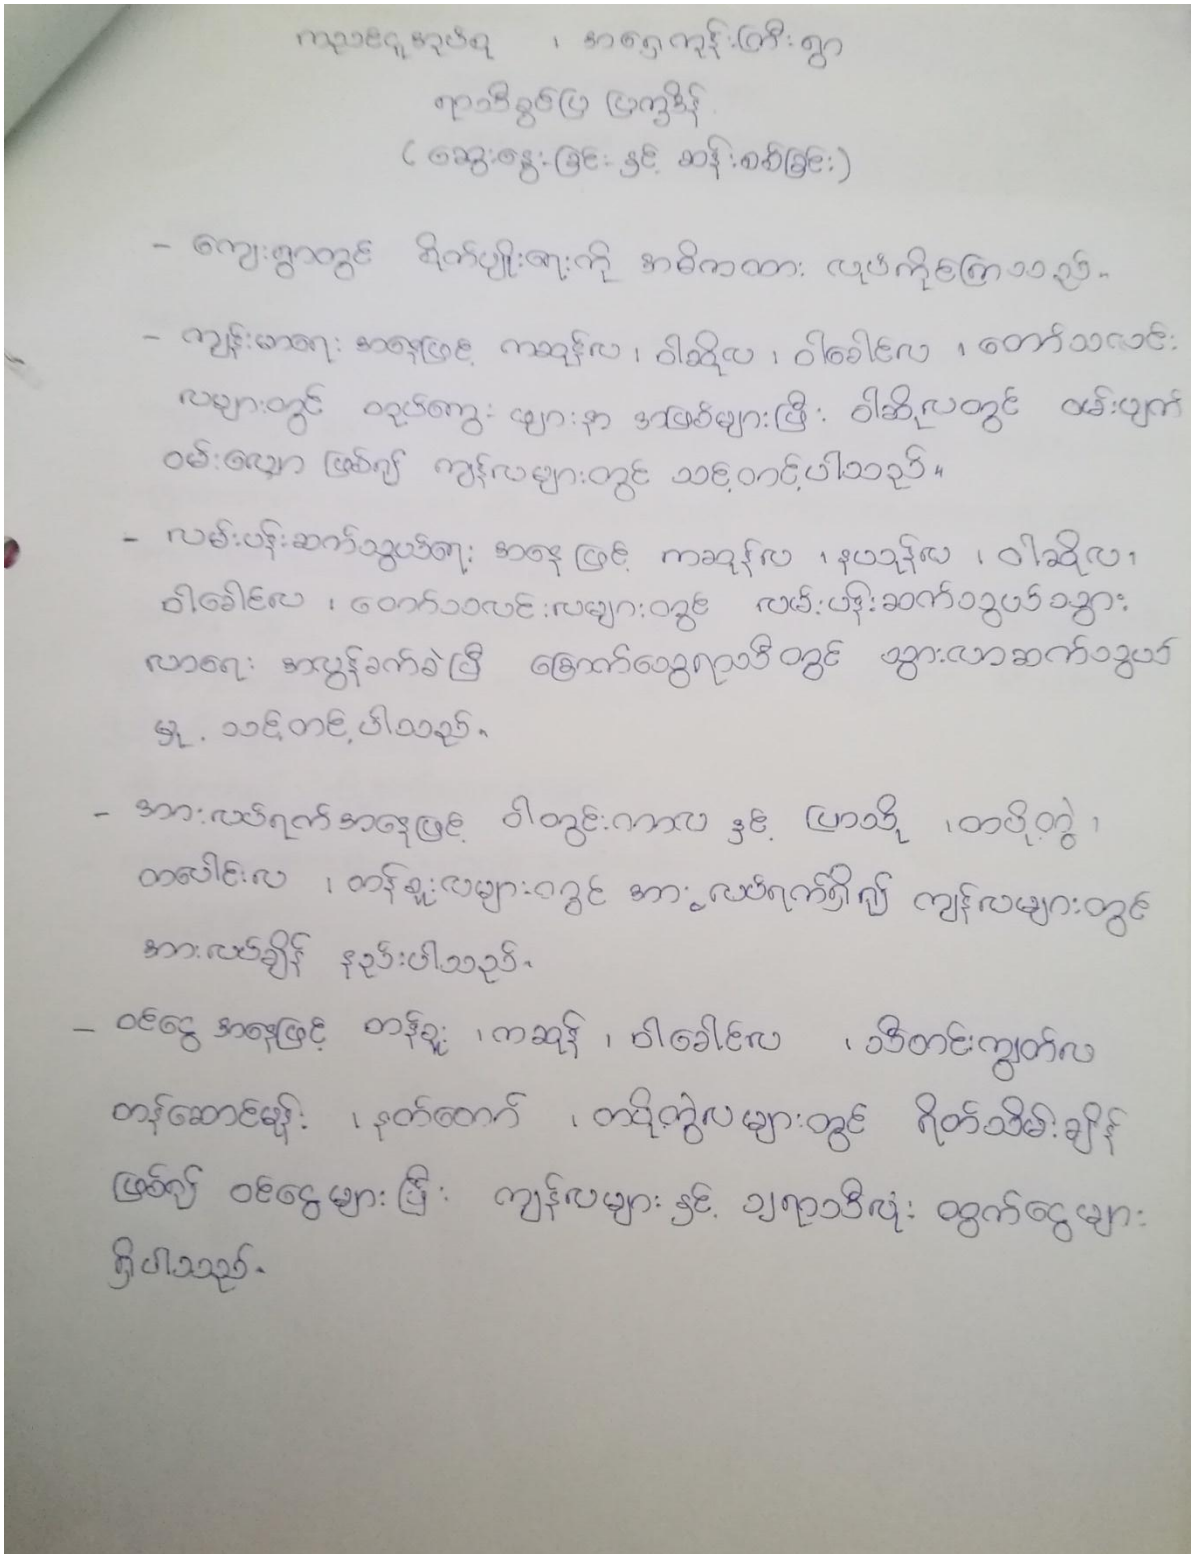 ကညင်ငူအုပ်စု ၊ အရှေ့ကုန်းကြီးရွာ
ရာသီခွင်ပြ ပြက္ခဒိန်
( ဆွေးနွေးခြင်း နှင့် ဆန်းစစ်ခြင်း )
- ကျေးရွာတွင် စိုက်ပျိုးရေးကို အဓိကထား လုပ်ကိုင်ကြသည်။
- ကျန်းမာရေး အနေဖြင့် ကဆုန်လ ၊ ဝါဆိုလ ၊ ဝါခေါင်လ ၊ တော်သလင်း
လများတွင် တုပ်ကွေး ဖျားနာ အဖြစ်များပြီး ဝါဆိုလတွင် ဝမ်းပျက်
ဝမ်းလျှော ဖြစ်၍ ကျန်လများတွင် သင့်တင့်ပါသည်။
- လမ်းပန်းဆက်သွယ်ရေး အနေဖြင့် ကဆုန်လ ၊ နယုန်လ ၊ ဝါဆိုလ ၊
ဝါခေါင်လ ၊ တော်သလင်းလများတွင် လမ်းပန်းဆက်သွယ်သွား
လာရေး အလွန်ခက်ခဲပြီ ခြောက်သွေ့ရာသီတွင် သွားလာဆက်သွယ်
မှု သင့်တင့်ပါသည်။
- အားလပ်ရက်အနေဖြင့် ဝါတွင်းကာလ နှင့် ပြာသို ၊ တပို့တွဲ ၊
တပေါင်းလ ၊ တန်ခူးလများတွင် အားလပ်ရက်ရှိ၍ ကျန်လများတွင်
အားလပ်ချိန် နည်းပါသည်။
- ဝင်ငွေ အနေဖြင့် တန်ခူး ၊ ကဆုန် ၊ ဝါခေါင်လ ၊ သီတင်းကျွတ်လ
တန်ဆောင်မုန်း ၊ နတ်တော် ၊ တပို့တွဲလများတွင် ရိတ်သိမ်းချိန်
ဖြစ်၍ ဝင်ငွေများပြီး ကျန်လများ နှင့် ရာသီလုံး ထွက်ငွေများ
ရှိပါသည်။